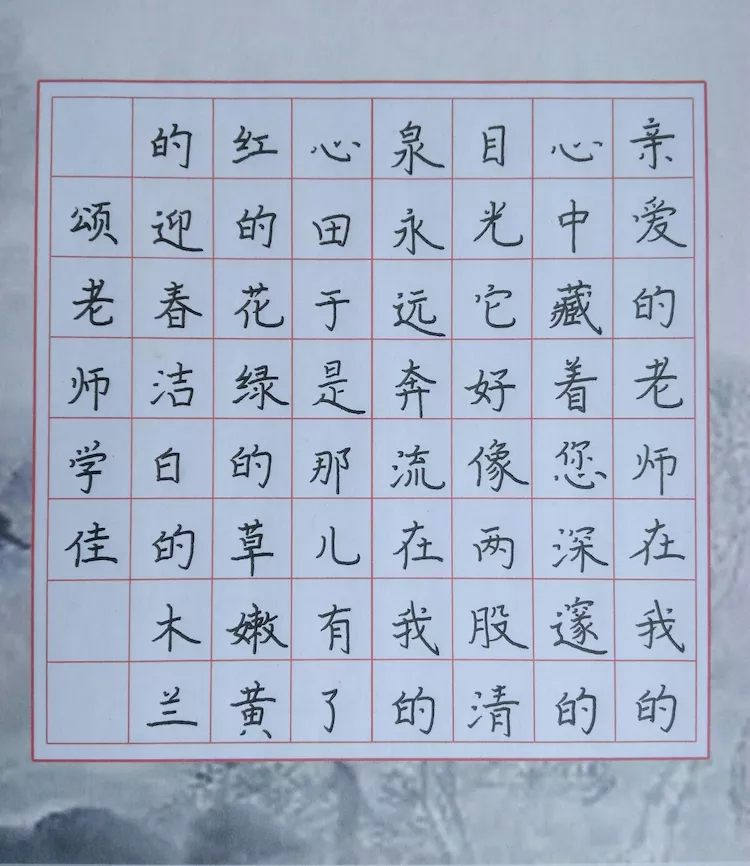 亲爱的老师在我的
心中藏着您深邃的
目光它好像两股清
泉永远奔流在我的
心田于是那儿有了
红的花绿的草嫩黄
的迎春洁白的木兰
颂老师学佳